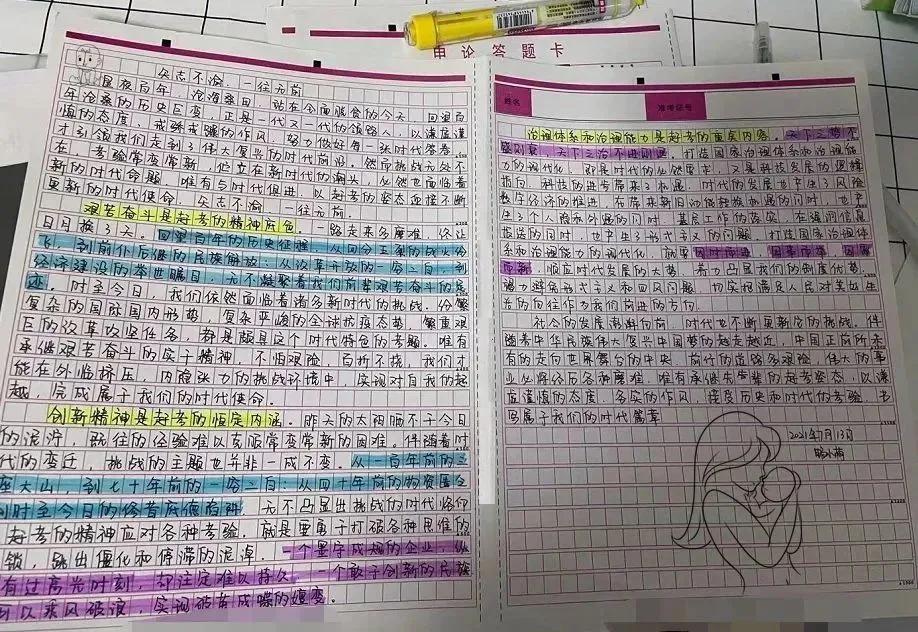 申论答题卡
矢志不渝 一往无前
星夜百年，沧海桑田，站在全面脱贫的今天，回望百
年沧桑的历史巨变，正是一代又一代的领路人，以谦虚谨
慎的态度，戒骄戒躁的作风，努力做好每一张时代答卷，
才引领我们走到了伟大复兴的时代前沿。然而挑战无处不
在，考验常变常新，伫立在新时代的潮头，必然也面临着
新的时代命题，唯有与时代俱进，以赶考的姿态迎接不断
更新的时代使命，矢志不渝，一往无前。
艰苦奋斗是赶考的精神底色。一路走来多磨难，终让
日月换了天。回望百年的历史征程，从四分五裂的战火纷
飞，到前仆后继的民族解放；从改革开放的一穷二白，到
经济建设的举世瞩目，无不凝聚着我们前辈艰苦奋斗的足
迹。时至今日，我们依然面临着诸多新时代的挑战。纷繁
复杂的国际国内形势，复杂严峻的全球抗疫态势，繁重艰
巨的改革攻坚任务，都是颇具这个时代特色的考题。唯有
承继艰苦奋斗的实干精神，不怕艰险，百折不挠，我们才
能在外临挤压，内险张力的挑战环境中，实现对自我的超
越，完成属于我们的时代使命。
创新精神是赶考的恒定内涵。昨天的太阳晒不干今日
的泥泞，既往的经验难以克服常变常新的困难。伴随着时
代的变迁，挑战的主题也并非一成不变。从一百年前的三
座大山，到七十年前的一穷二白；从四十年前的物资匮乏
到时至今日的修昔底德陷阱，无不凸显出挑战的时代烙印
赶考的精神应对各种考验，就是要勇于打破各种思维的
锁，跳出僵化和停滞的泥淖。一个墨守成规的企业，纵
有过高光时刻，却注定难以持久。一个敢于创新的民族
可以乘风破浪，实现破茧成蝶的嬗变。
姓名
准考证号
治理体系和治理能力是赶考的重要内容。天下之势不
盛则衰，天下之治不进则退。打造国家治理体系和治理能
力的现代化，即是时代的必然要求，又是科技发展的逻辑
指向。科技的进步带来了机遇，时代的发展也产生了风险
数字经济的推进，在带来新旧动能转换机遇的同时，也产
生了个人隐私外遇的问时，基层工作的落实，在强调信息
报送的同时，也产生了形式主义的问题。打造国家治理体
系和治理能力的现代化，就要因时而进，因事而革，因势
而新，顺应时代发展的大势，着力凸显我们的制度优势，
努力避免形式主义和四风问题，切实把满足人民对美好生
活的向往作为我们前进的方向。
社会的发展潮滚向前，时代也不断更新它的挑战。伴
随着中华民族伟大复兴中国梦的越走越近，中国正前所未
有的走向世界舞台的中央，前行的道路多艰险，伟大的事
业必将经历各种磨难，唯有承继先辈的赶考姿态，以谦
虚谨慎的态度，务实的作风，接受历史和时代的考验，书
写属于我们的时代篇章
2021年7月13日